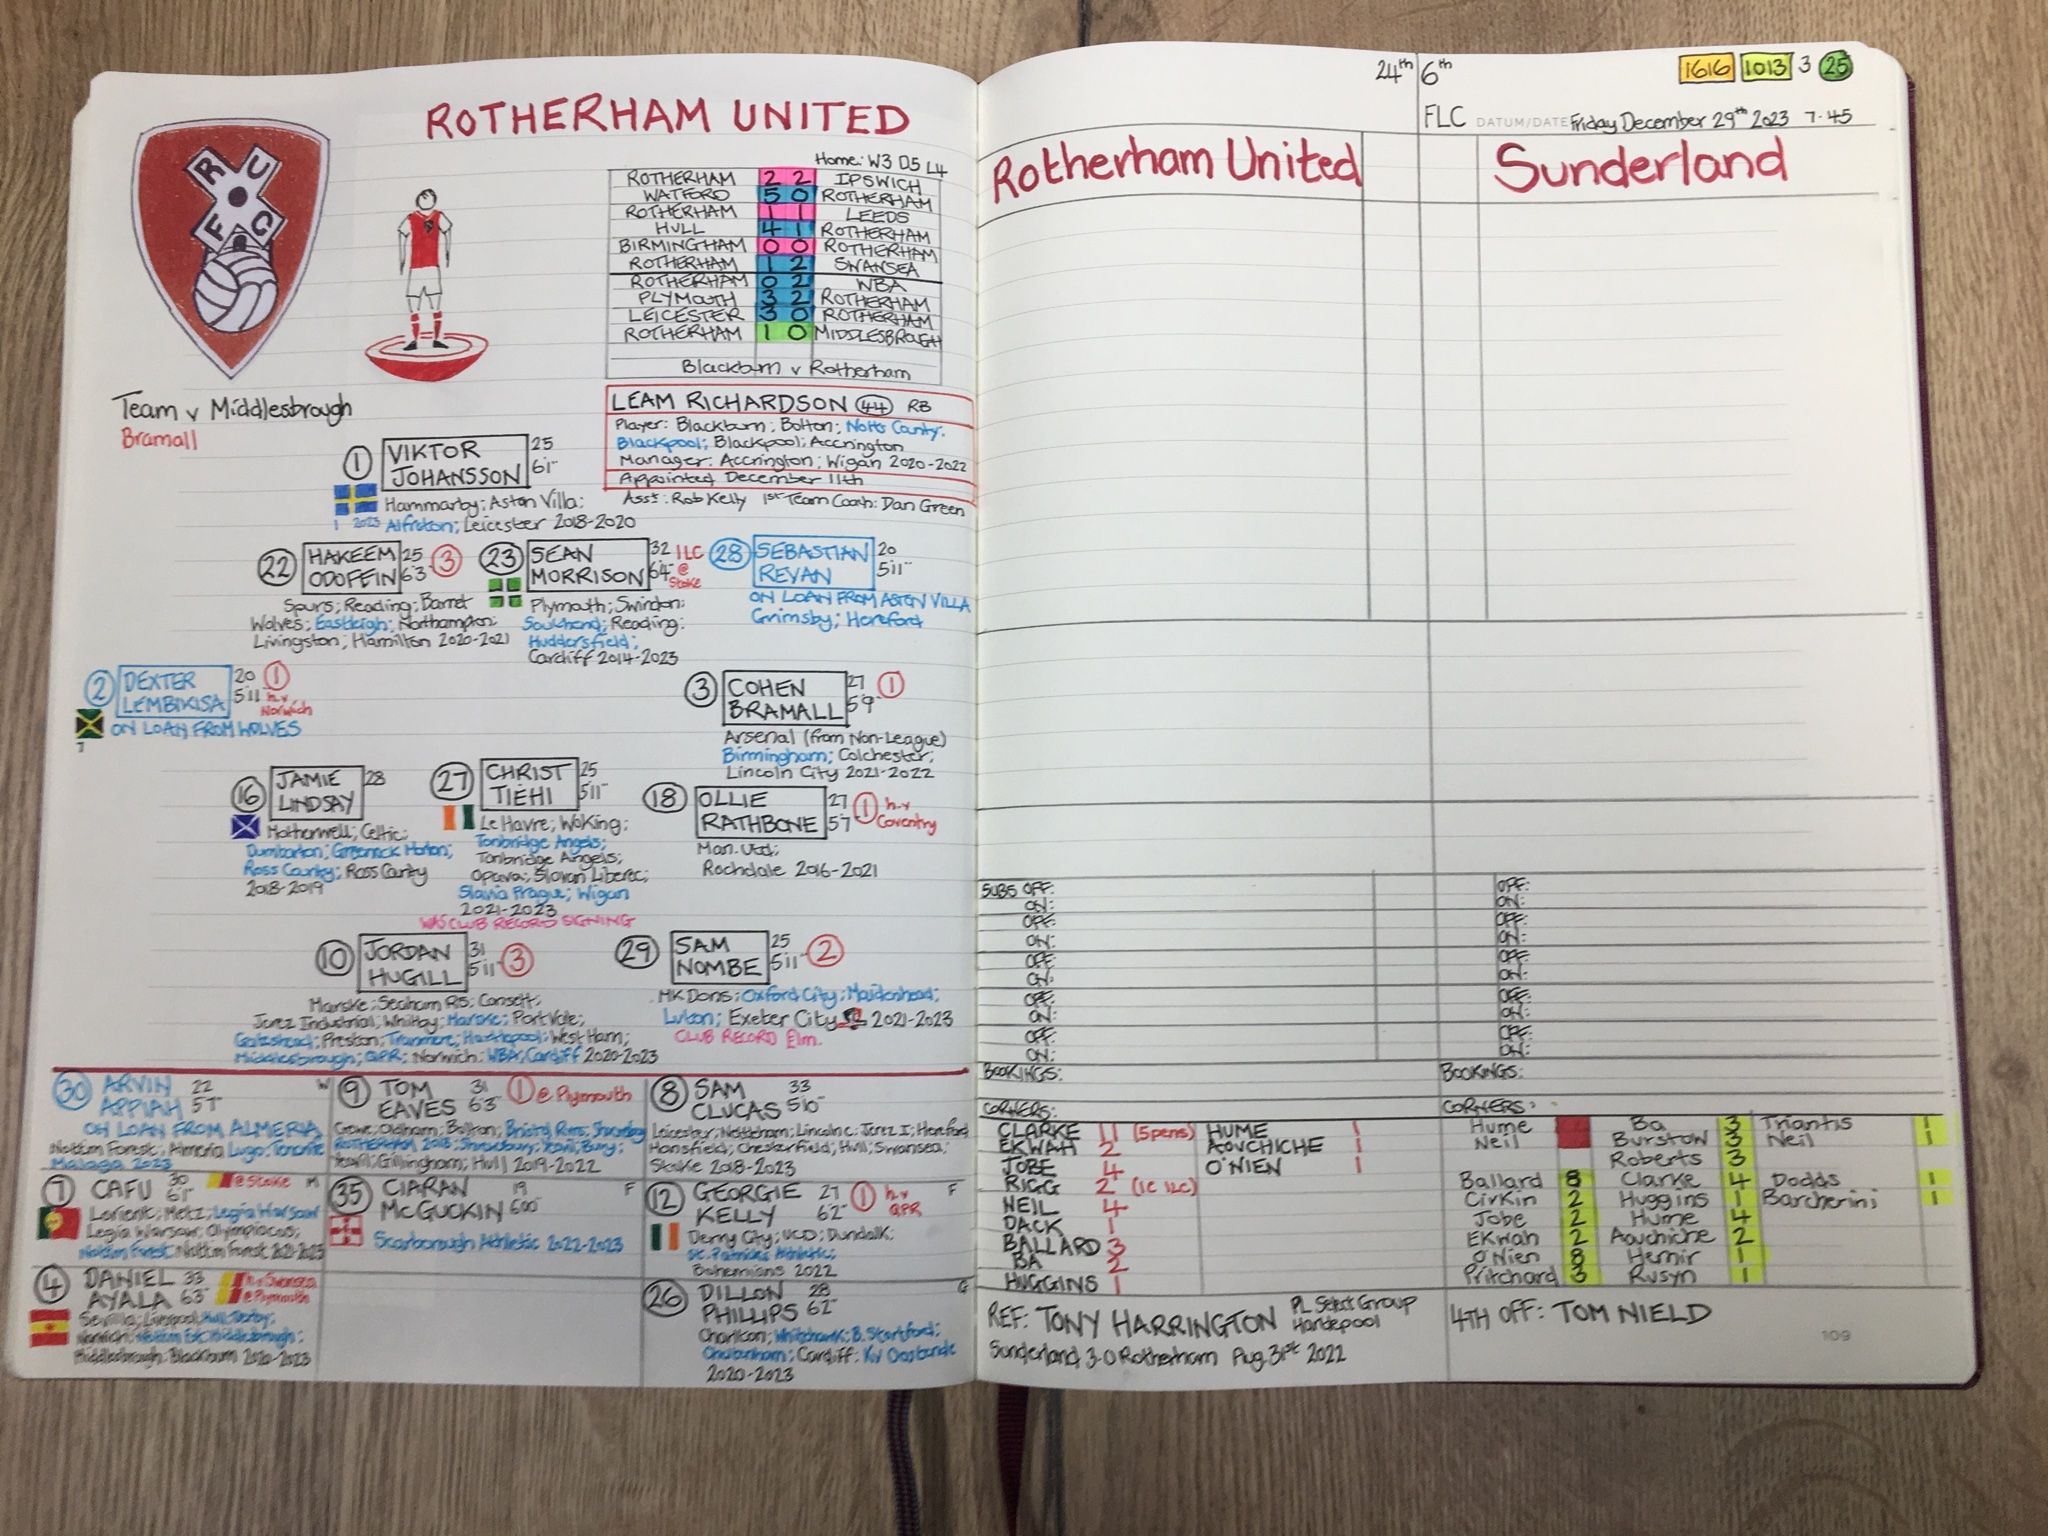 ROTHERHAM UNITED
R C
F C
Home: W3 D5 L4
ROTHERHAM 2 2 IPSWICH
WATFORD 5 0 ROTHERHAM
ROTHERHAM 1 1 LEEDS
HULL 4 1 ROTHERHAM
BIRMINGHAM 0 0 ROTHERHAM
ROTHERHAM 1 2 SWANSEA
ROTHERHAM 0 2 WBA
PLYMOUTH 3 2 ROTHERHAM
LEICESTER 3 0 ROTHERHAM
ROTHERHAM 1 0 MIDDLESBROUGH
Blackburn v Rotherham
Team v Middlesbrough
Bramall
LEAM RICHARDSON 44 RB
Player: Blackburn; Bolton; Notts County.
Blackpool; Blackpool; Accrington
Manager: Accrington; Wigan 2020-2022
Appointed December 11th
Asst: Rob Kelly 1st Team Coach: Dan Green
1 VIKTOR JOHANSSON 25 6'1"
Hammarby; Aston Villa;
1 2023 Alfreton; Leicester 2018-2020
22 HAKEEM ODOFFIN 25 6'3" 3
Spurs; Reading; Barnet
Wolves; Eastleigh; Northampton;
Livingston; Hamilton 2020-2021
23 SEAN MORRISON 32 6'4" 1LC @ Stoke
Plymouth; Swindon;
Southend; Reading;
Huddersfield;
Cardiff 2014-2023
28 SEBASTIAN REVAN 20 5'11"
ON LOAN FROM ASTON VILLA
Grimsby; Hereford
2 DEXTER LEMBIKISA 20 5'11" 1 h.v Norwich
ON LOAN FROM WOLVES
7
3 COHEN BRAMALL 27 5'9" 1
Arsenal (from Non-League)
Birmingham; Colchester;
Lincoln City 2021-2022
16 JAMIE LINDSAY 28
Motherwell; Celtic;
Dumbarton; Greenock Morton;
Ross County; Ross County
2018-2019
27 CHRIST TIEHI 25 5'11"
Le Havre; Woking;
Tonbridge Angels;
Tonbridge Angels;
Opava; Slovan Liberec;
Slavia Prague; Wigan
2021-2023
WAS CLUB RECORD SIGNING
18 OLLIE RATHBONE 27 5'7" 1 h.v Coventry
Man. Utd;
Rochdale 2016-2021
10 JORDAN HUGILL 31 5'11" 3
Marske; Seaham RS; Consett;
Jerez Industrial; Whitby; Marske; Port Vale;
Gateshead; Preston; Tranmere; Hartlepool; West Ham;
Middlesbrough; QPR; Norwich; WBA; Cardiff 2020-2023
29 SAM NOMBE 25 5'11" 2
MK Dons; Oxford City; Maidenhead;
Luton; Exeter City 2021-2023
CLUB RECORD £1m.
30 ARVIN APPIAH 22 5'7" W
ON LOAN FROM ALMERIA
Nottm Forest; Almeria Lugo; Tenerife
Malaga 2023
9 TOM EAVES 31 6'3" 1 @ Plymouth
Crewe; Oldham; Bolton; Bristol Rvrs; Shrewsbury
ROTHERHAM 2015; Shrewsbury; Yeovil; Bury;
Yeovil; Gillingham; Hull 2019-2022
8 SAM CLUCAS 33 5'10"
Leicester; Nottm Fm; Lincoln C; Jerez I; Hereford
Mansfield; Chesterfield; Hull; Swansea;
Stoke 2018-2023
7 CAFU 30 6'1" @ Stoke M
Lorient; Metz; Legia Warsaw
Legia Warsaw; Olympiacos;
Nottm Forest; Nottm Forest 2021-2023
35 CIARAN McGUCKIN 19 6'00" F
Scarborough Athletic 2022-2023
12 GEORGIE KELLY 27 6'2" 1 h.v QPR F
Derry City; UCD; Dundalk;
St. Patricks Athletic;
Bohemians 2022
4 DANIEL AYALA 33 6'3" h.v Swansea @ Plymouth
Sevilla; Liverpool; Hull; Derby;
Norwich; Nottm Fst; Middlesbrough;
Middlesbrough; Blackburn 2020-2023
26 DILLON PHILLIPS 28 6'2" G
Charlton; Whitehawk; B. Stortford;
Cheltenham; Cardiff; KV Oostende
2020-2023
24th 6th 1616 1013 3 25
FLC DATUM/DATE Friday December 29th 2023 7.45
Rotherham United Sunderland
SUBS OFF: OFF:
ON: ON:
OFF: OFF:
ON: ON:
OFF: OFF:
ON: ON:
OFF: OFF:
ON: ON:
OFF: OFF:
ON: ON:
BOOKINGS: BOOKINGS:
CORNERS: CORNERS:
CLARKE 11 (5pens) HUME 1
EKWAH 2 AOUCHICHE 1
JOBE 4 O'NIEN 1
RIGG 2 (1C 1LC)
NEIL 4
DACK 1
BALLARD 3
BA 2
HUGGINS 1
Hume Ba 3 Triantis 1
Neil Burstow 3 Neil 1
Roberts 3
Ballard 8 Clarke 4 Dodds 1
Cirkin 2 Huggins 1 Barcherini 1
Jobe 2 Hume 4
Ekwah 2 Aouchiche 2
O'Nien 8 Hemir 1
Pritchard 3 Rusyn 1
REF: TONY HARRINGTON PL Select Group Hartlepool
Sunderland 3-0 Rotherham Aug 31st 2022
4TH OFF: TOM NIELD
109